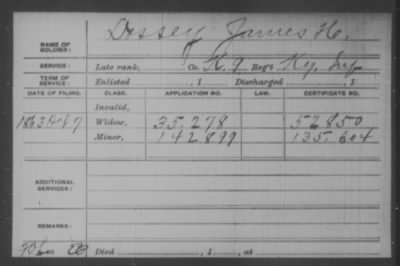 Dossey James H.
NAME OF SOLDIER:
SERVICE: Late rank, Co. K, 9 Reg't Ky. Inf
TERM OF SERVICE: Enlisted , 1 Discharged , 1
DATE OF FILING. CLASS. APPLICATION NO. LAW. CERTIFICATE NO.
Invalid,
1863 Widow, 35.278 52850
Minor, 142899 135.604
ADDITIONAL SERVICES:
REMARKS:
Died , 1 , at